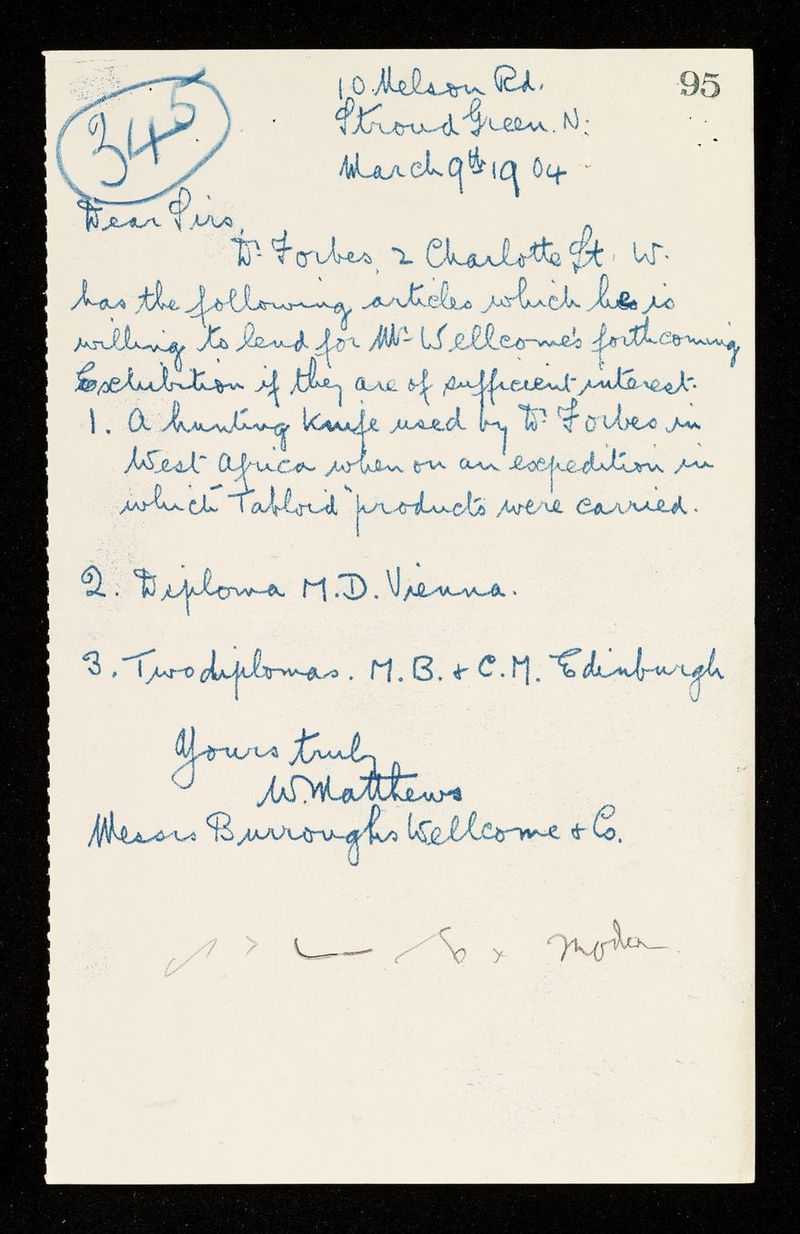 95
345
10 Nelson Rd.
Stroud Green. N.
March 9th 1904
Dear Sirs,
Dr. Forbes, 2 Charlotte St. W.
has the following articles which he is
willing to lend for Mr. Wellcome's forthcoming
Exhibition if they are of sufficient interest.
1. A hunting knife used by Dr. Forbes in
West Africa when on an expedition in
which "Tabloid" products were carried.
2. Diploma M.D. Vienna.
3. Two diplomas. M.B. & C.M. Edinburgh
Yours truly
W. Matthews
Messrs Burroughs Wellcome & Co.